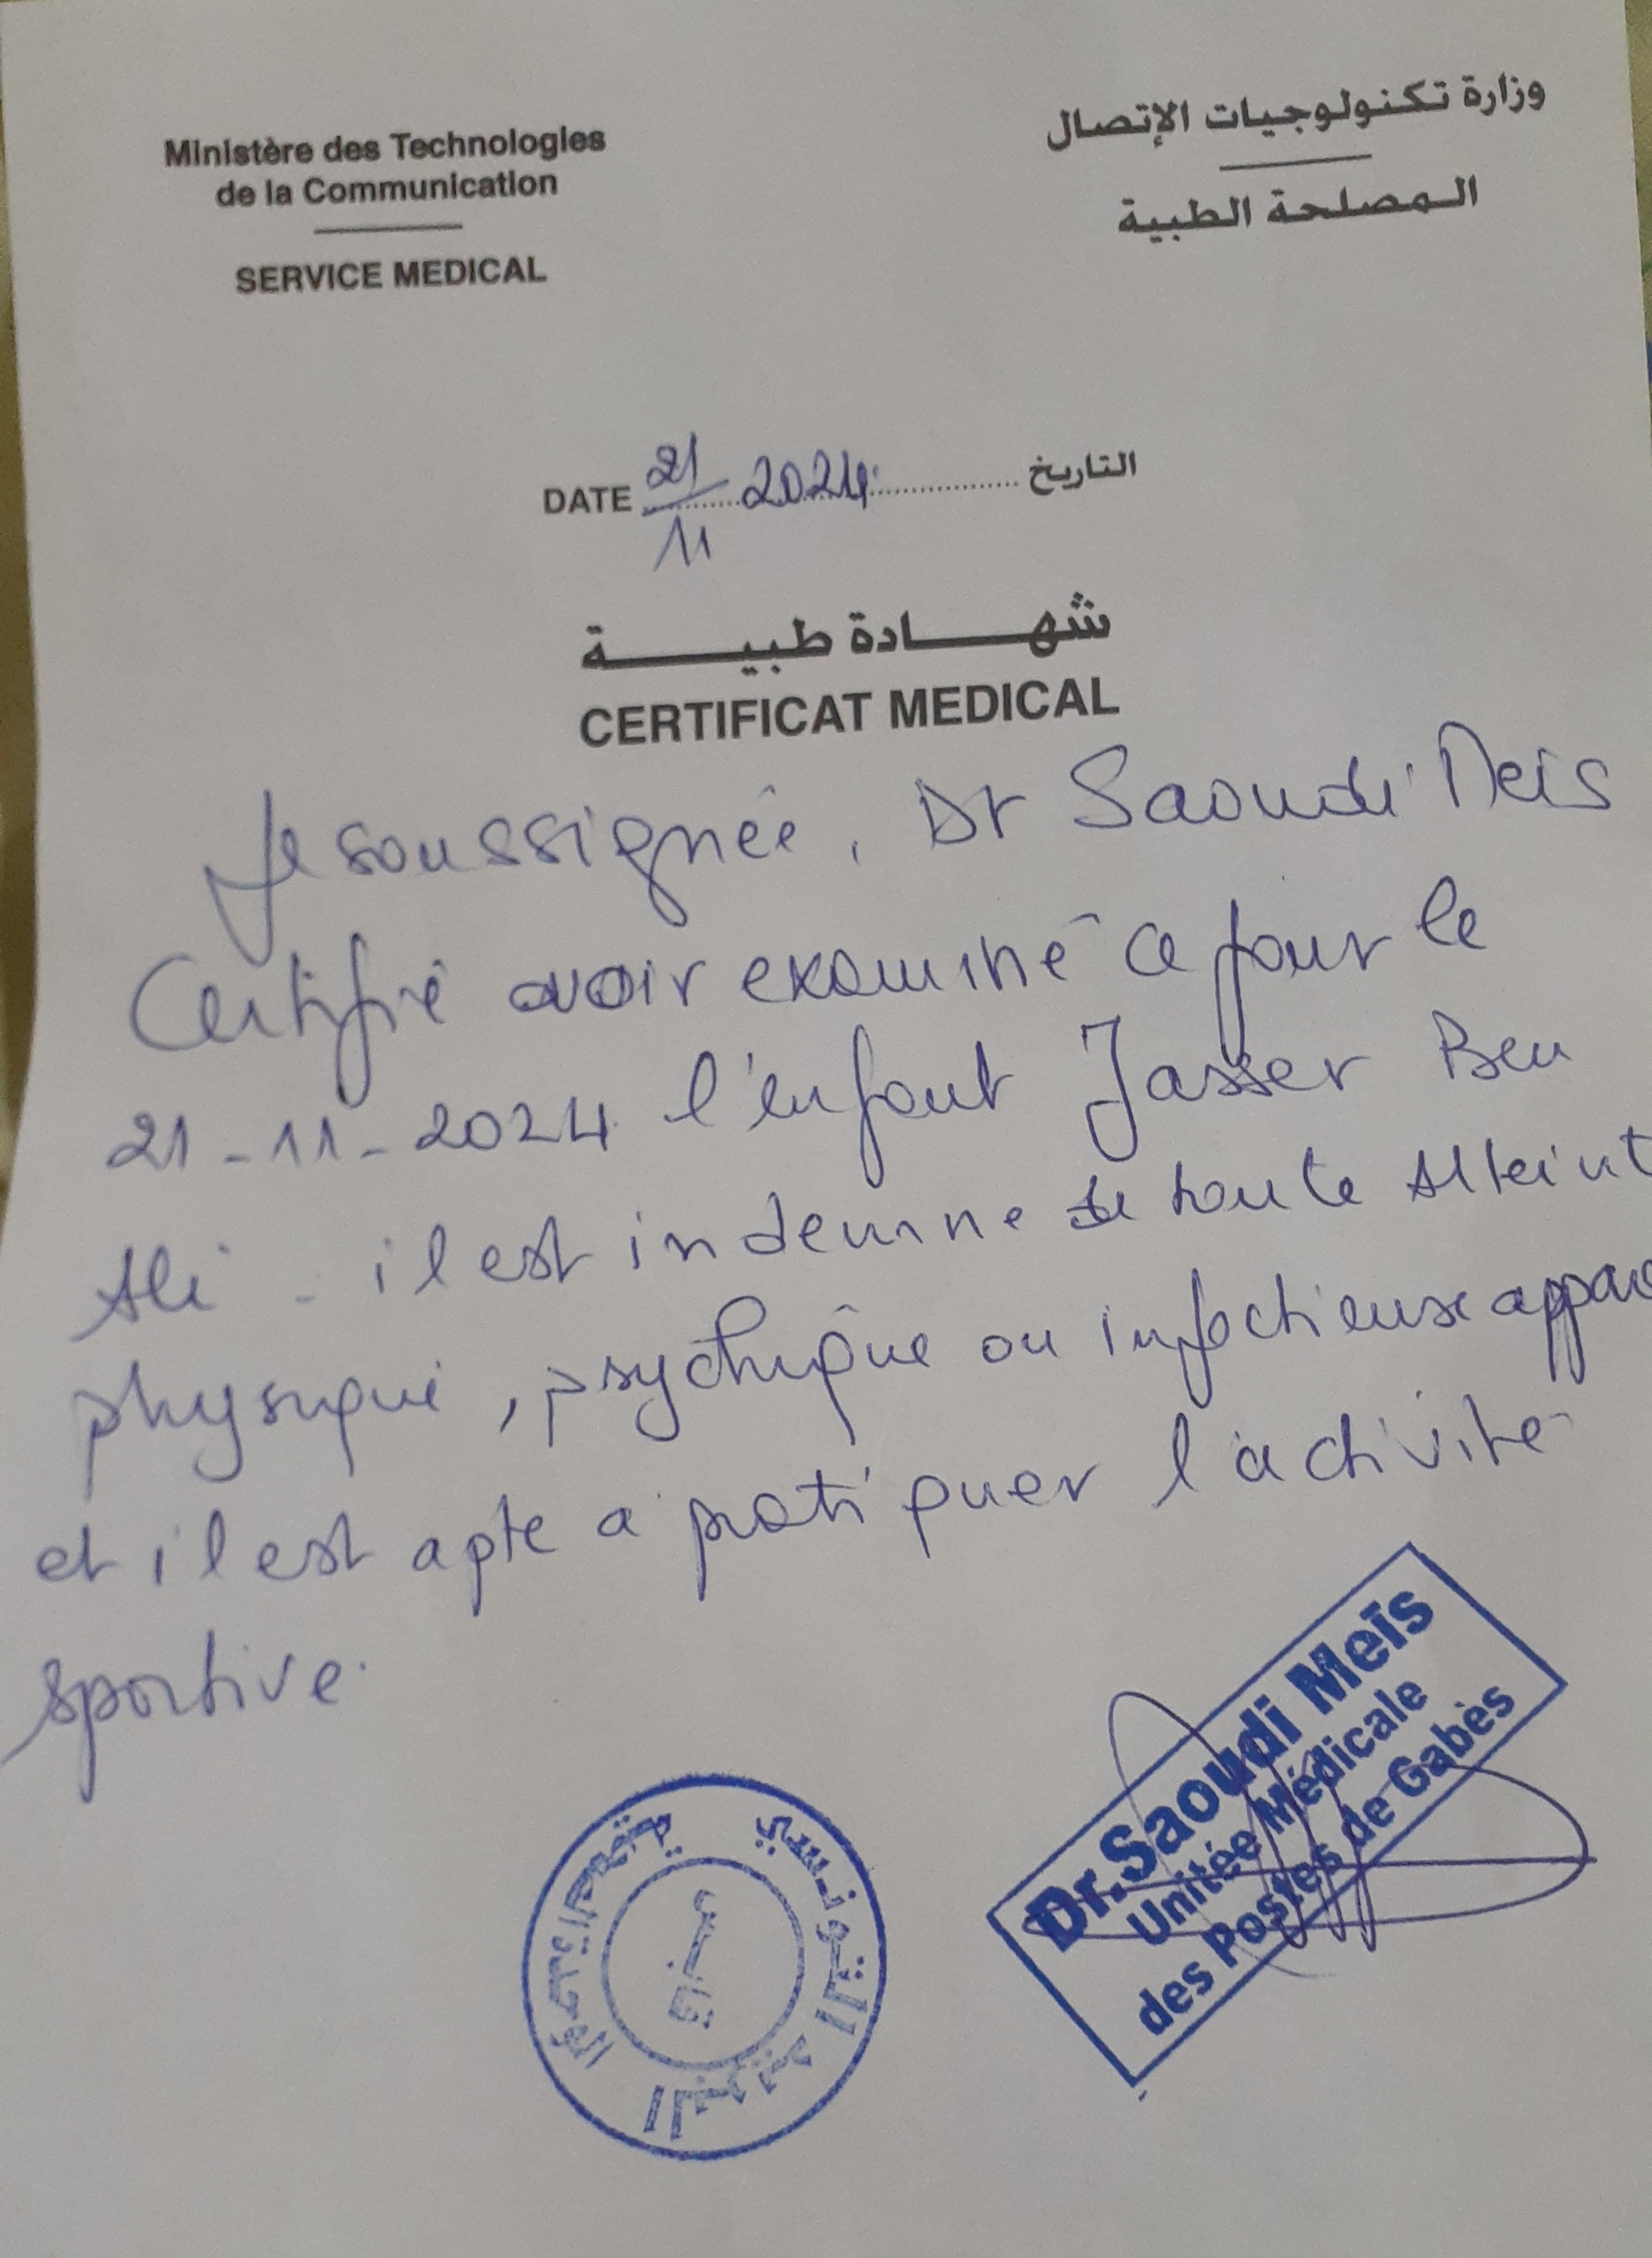 Ministère des Technologies
de la Communication
SERVICE MEDICAL
وزارة تكنولوجيات الإتصال
المصلحة الطبية
DATE 21/11 2024 التاريخ
شهادة طبية
CERTIFICAT MEDICAL
Je soussignée, Dr Saoudi Meis
Certifie avoir examiné ce jour le
21-11-2024 l'enfant Jasser Ben
Ali - il est indemne de toute atteint
physique, psychique ou infectieuse appar
et il est apte a pratiquer l'activité
sportive.
Dr.Saoudi Meïs
Unitée Médicale
des Postes de Gabès
البريد التونسي
الوحدة الصحية
قابس